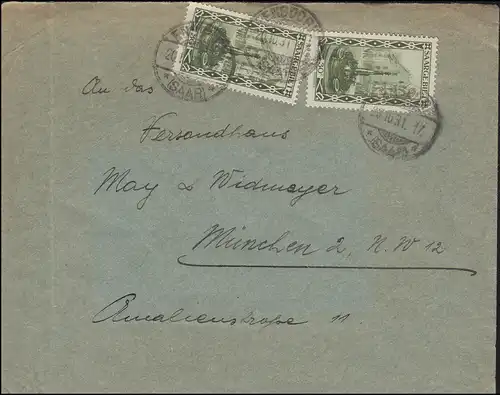 SAARGEBIET
SAARGEBIET
(SAAR)
(SAAR)
An das
Versandhaus
May & Widmayer
München 2, N.W 12
Amalienstraße 11